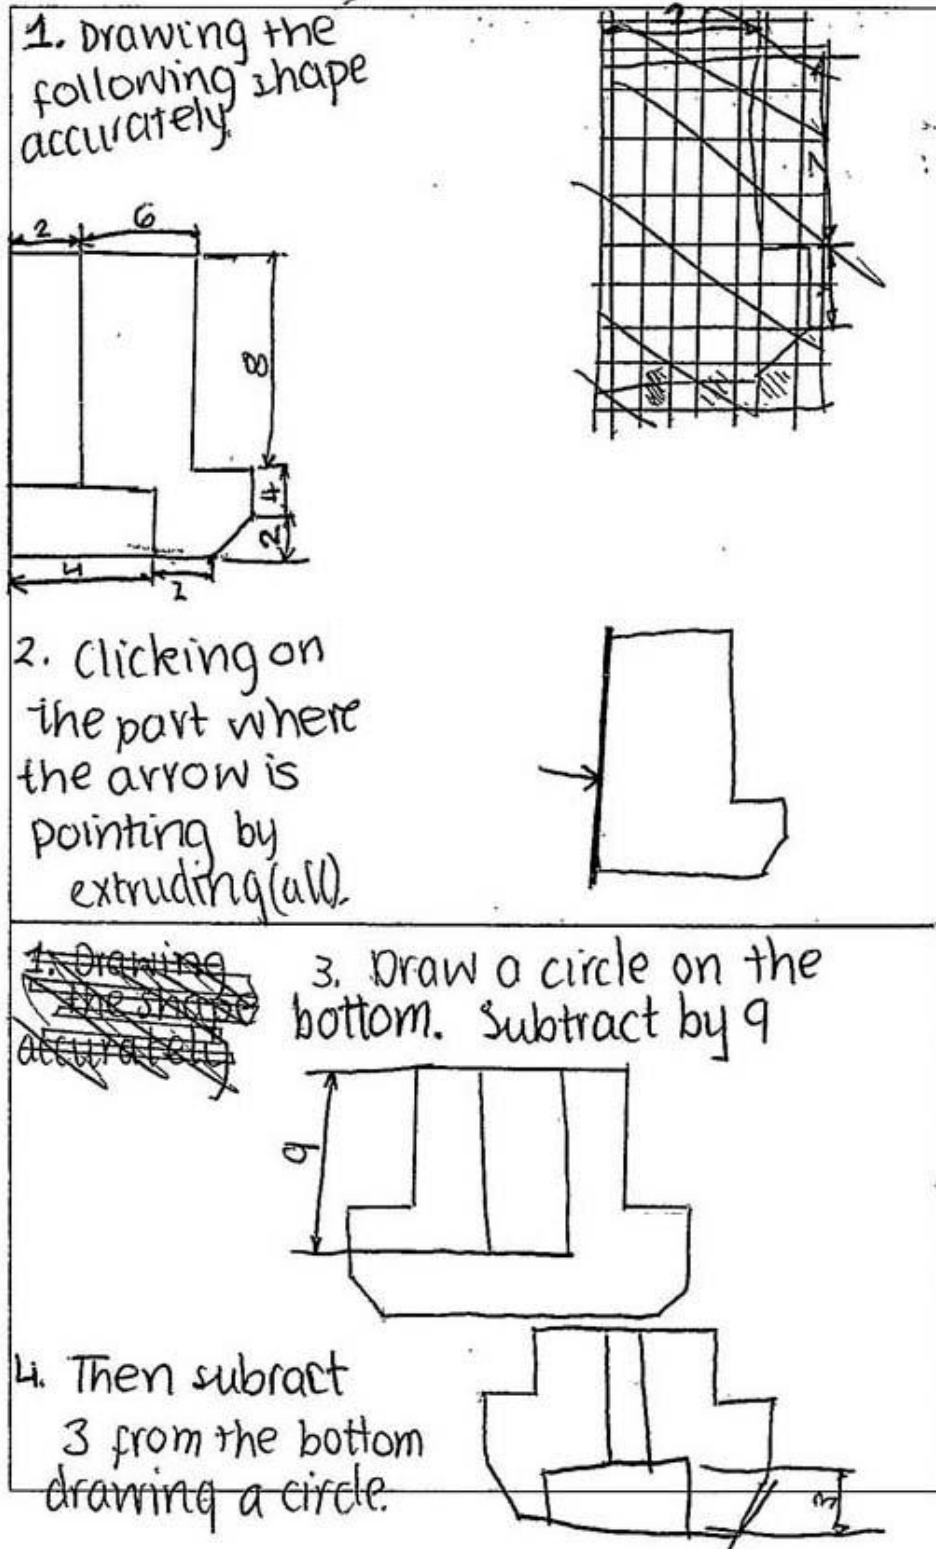 1. Drawing the
following shape
accurately.
2
6
8
4
2
4
7
2. Clicking on
the part where
the arrow is
pointing by
extruding (all).
1. Drawing
the shape
accurately
3. Draw a circle on the
bottom. Subtract by 9
9
4. Then subract
3 from the bottom
drawing a circle.
3